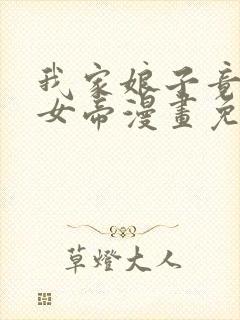 我家娘子竟
女帝漫畫免
草燈大人